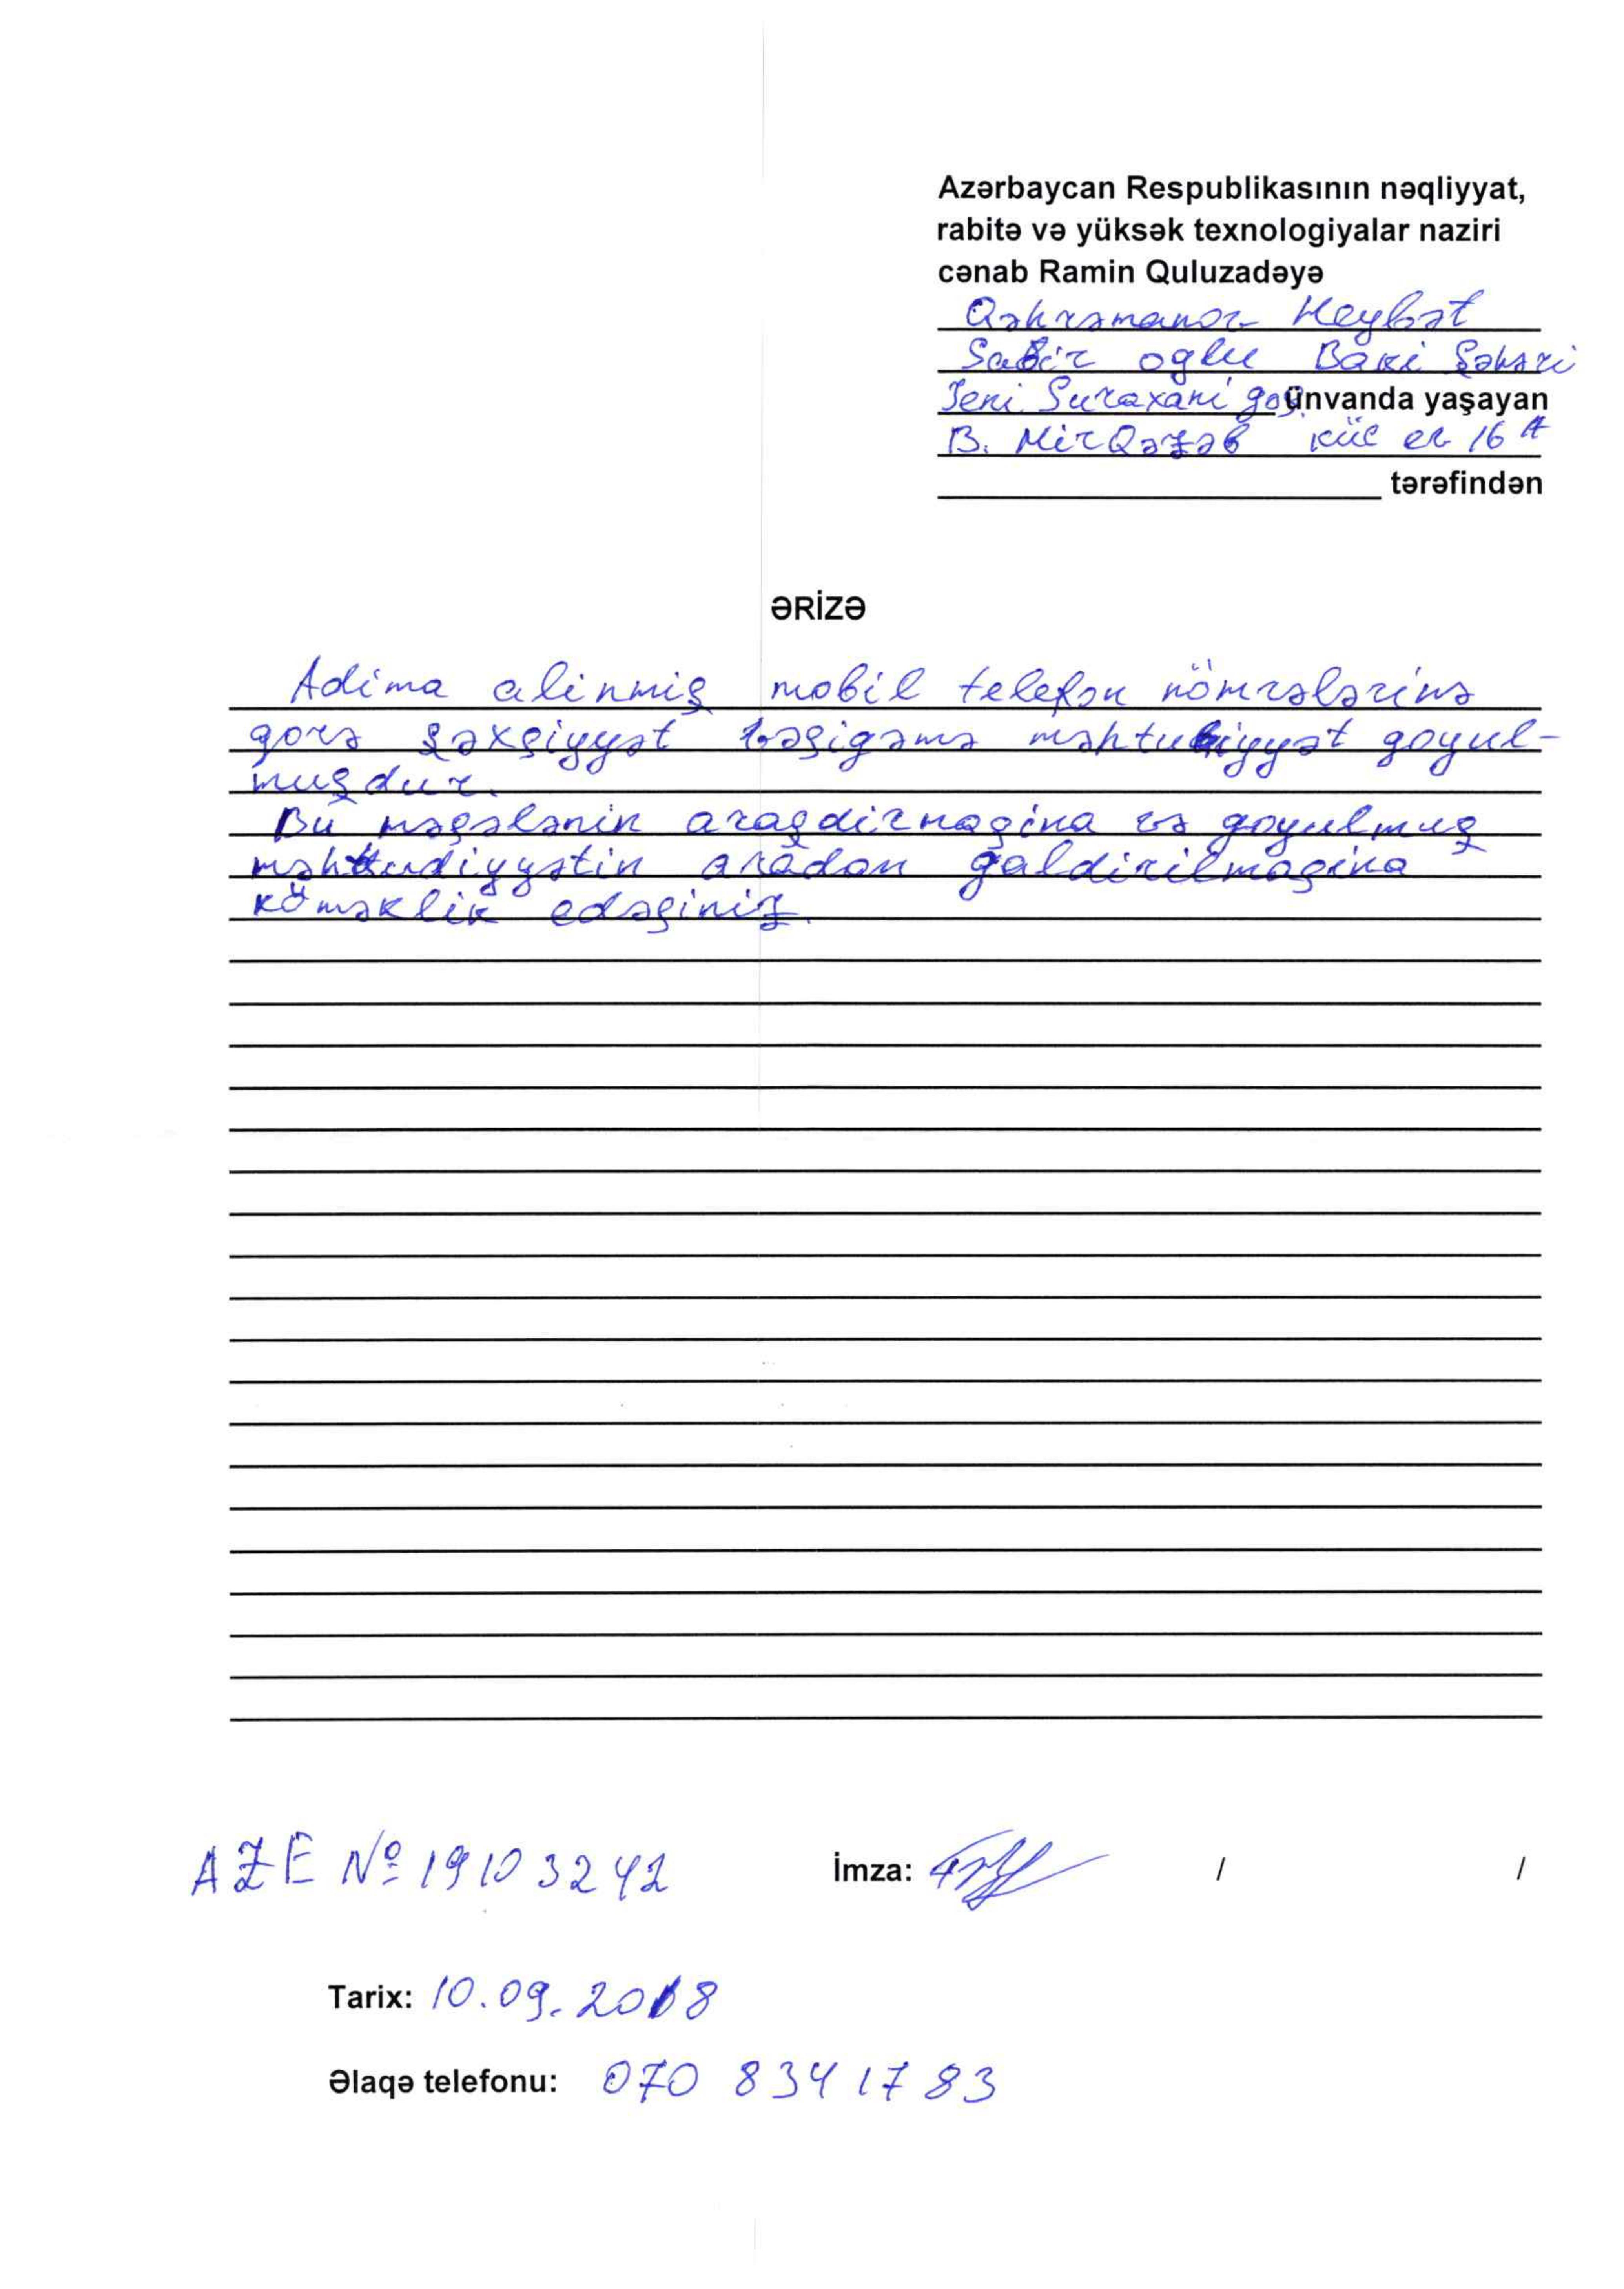 Azərbaycan Respublikasının nəqliyyat,
rabitə və yüksək texnologiyalar naziri
cənab Ramin Quluzadəyə
Qəhrəmanov Heybət
Sabir oglu Baki Şəhəri
Yeni Suraxani qəs. ünvanda yaşayan
B. MirQəzəb küc ev 16 A
tərəfindən
ƏRİZƏ
Adima alinmiş mobil telefon nömrələrinə
gorə şəxşiyyət vəşigəmə məhtudiyyət goyul-
muşdur.
Bu məşələnin araşdirmağina və goyulmuş
məhtudiyyətin aradan galdirilmağina
köməklik edəşiniz.
AZE № 19103242 İmza: / /
Tarix: 10.09.2018
Əlaqə telefonu: 070 834 17 83